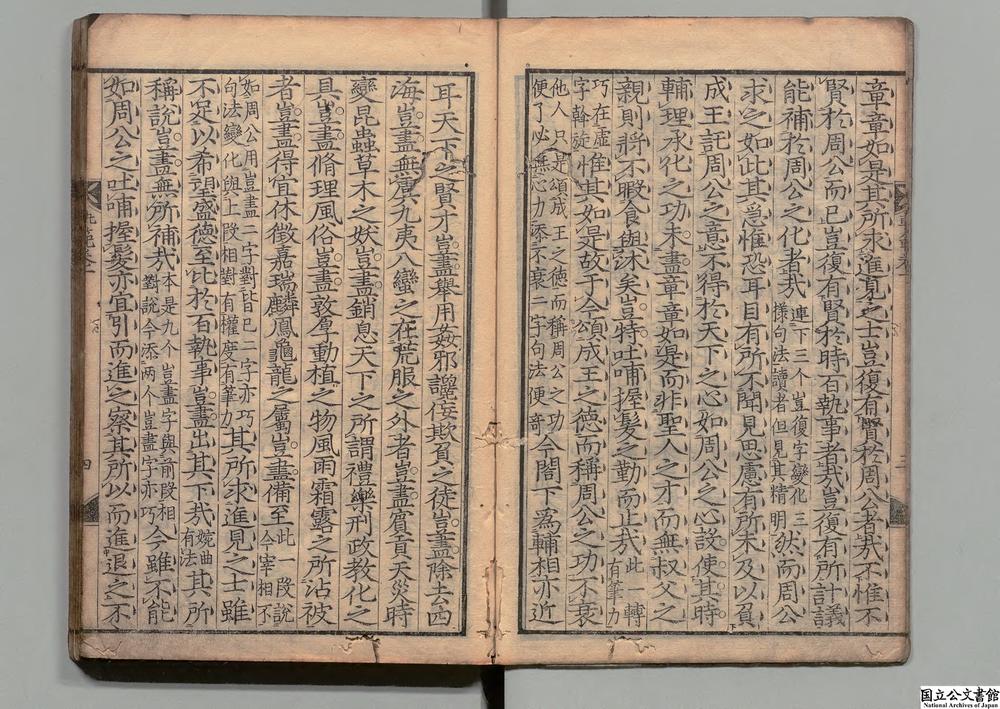 章章如是其所求進見之士豈復有賢於周公者哉不惟不
賢於周公而已豈復有賢於時百執事者哉豈復有所計議
能補於周公之化者哉連下三个豈復字變化三樣句法讀者但見其精明然而周公
求之如此其急惟恐耳目有所不聞見思慮有所未及以負
成王託周公之意不得於天下之心如周公之心設使其時
輔理承化之功未盡章章如是而非聖人之才而無叔父之
親則將不暇食與沐矣豈特吐哺握髮之勤而止哉此一轉有筆力
巧在虛字斡旋惟其如是故于今頌成王之德而稱周公之功不衰
他人只是頌成王之德而稱周公之功便了必無心力添不衰二字句法便奇今閤下爲輔相亦近
耳天下之賢才豈盡舉用姦邪讒佞欺負之徒豈盡除去四
海豈盡無虞九夷八蠻之在荒服之外者豈盡賓貢天災時
變昆蟲草木之妖豈盡銷息天下之所謂禮樂刑政教化之
具豈盡脩理風俗豈盡敦厚動植之物風雨霜露之所沾被
者豈盡得宜休徵嘉瑞麟鳳龜龍之屬豈盡備至此一段說今宰相不
如周公用豈盡二字對皆已二字亦巧句法變化與上段相對有權度有筆力其所求進見之士雖
不足以希望盛德至比於百執事豈盡出其下哉婉曲有法其所
稱說豈盡無所補哉本是九个豈盡字與前段相對說今添两个豈盡字亦巧今雖不能
如周公之吐哺握髮亦宜引而進之察其所以而進退之不
四
国立公文書館
National Archives of Japan